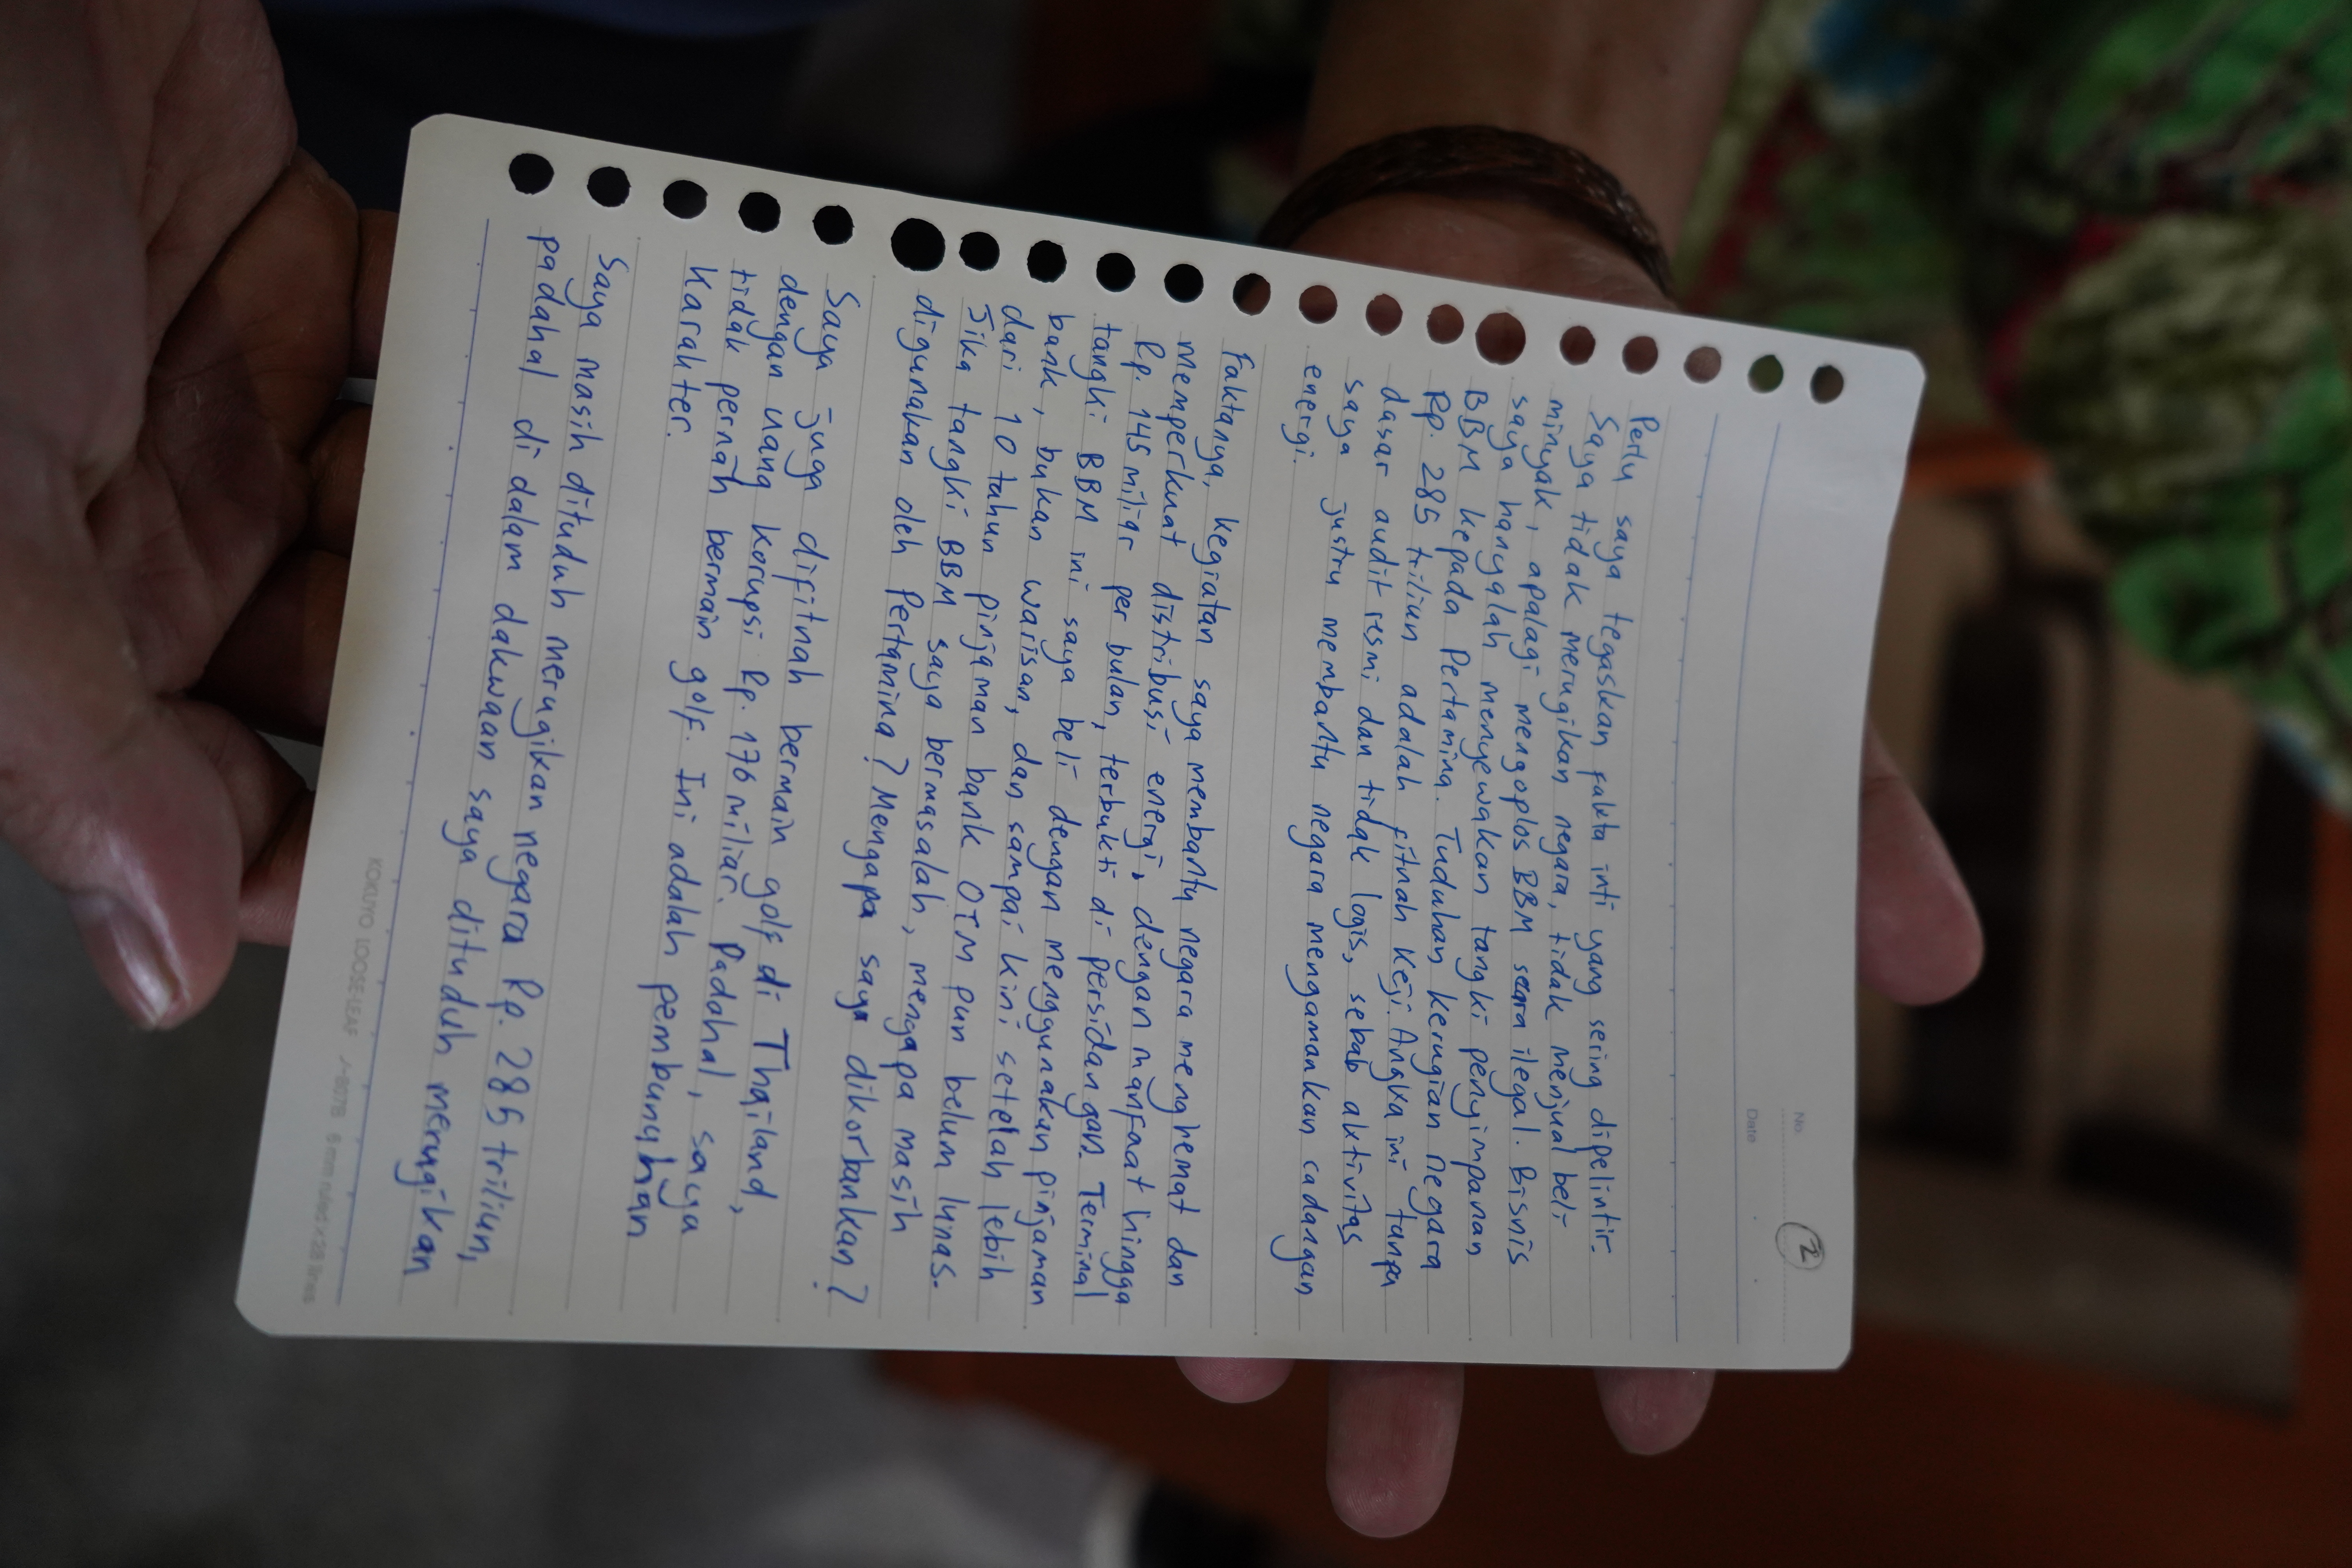 2
No.
Date
Perlu saya tegaskan fakta inti yang sering dipelintir.
Saya tidak merugikan negara, tidak menjual beli
minyak, apalagi mengoplos BBM secara ilegal. Bisnis
saya hanyalah menyewakan tangki penyimpanan
BBM kepada Pertamina. Tuduhan kerugian negara
Rp. 285 triliun adalah fitnah keji. Angka ini tanpa
dasar audit resmi dan tidak logis, sebab aktivitas
saya justru membantu negara mengamankan cadangan
energi.
Faktanya, kegiatan saya membantu negara menghemat dan
memperkuat distribusi energi, dengan manfaat hingga
Rp. 145 miliar per bulan, terbukti di persidangan. Terminal
tangki BBM ini saya beli dengan menggunakan pinjaman
bank, bukan warisan, dan sampai kini setelah lebih
dari 10 tahun pinjaman bank OTM pun belum lunas.
Jika tangki BBM saya bermasalah, mengapa masih
digunakan oleh Pertamina? Mengapa saya dikorbankan?
Saya juga difitnah bermain golf di Thailand,
dengan uang korupsi Rp. 176 miliar. Padahal, saya
tidak pernah bermain golf. Ini adalah pembunuhan
karakter.
Saya masih dituduh merugikan negara Rp. 285 triliun,
padahal di dalam dakwaan saya dituduh merugikan
KOKUYO LOOSE-LEAF ノ-897B 6 mm ruled x 28 lines